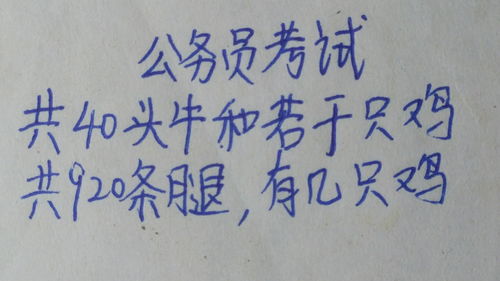 公务员考试
共40头牛和若干只鸡
共920条腿,有几只鸡